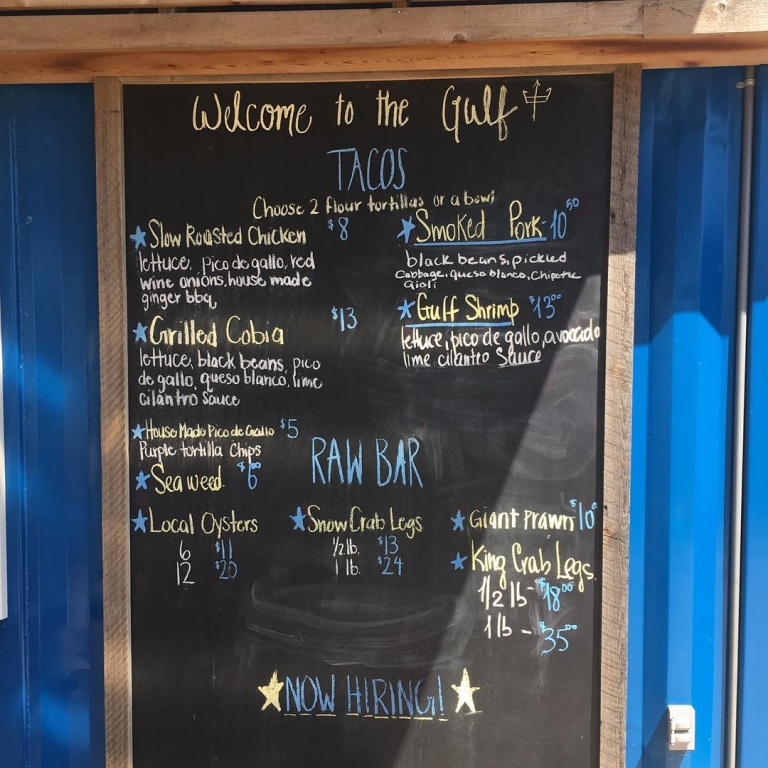 Welcome to the Gulf
TACOS
Choose 2 flour tortillas or a bowl
Slow Roasted Chicken $8
lettuce, pico de gallo, red
wine onions, house made
ginger bbq
Grilled Cobia $13
lettuce, black beans, pico
de gallo, queso blanco, lime
cilantro sauce
House Made Pico de Gallo $5
Purple tortilla Chips
Seaweed $6.00
Smoked Pork - 10 50
black beans, pickled
Cabbage, queso blanco, Chipotle
aioli
Guff Shrimp $13 00
lettuce, pico de gallo, avocado
lime cilantro Sauce
RAW BAR
Local Oysters
6 $11
12 $20
Snow Crab Legs
1/2 lb. $13
1 lb. $24
Giant Prawn $10
King Crab Legs
1/2 lb - $18 00
1 lb - $35 00
NOW HIRING!